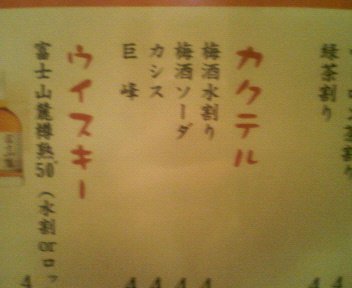 緑茶割り
カクテル
梅酒水割り
梅酒ソーダ
カシス
巨峰
ウイスキー
富士山麓樽熟50°（水割orロッ